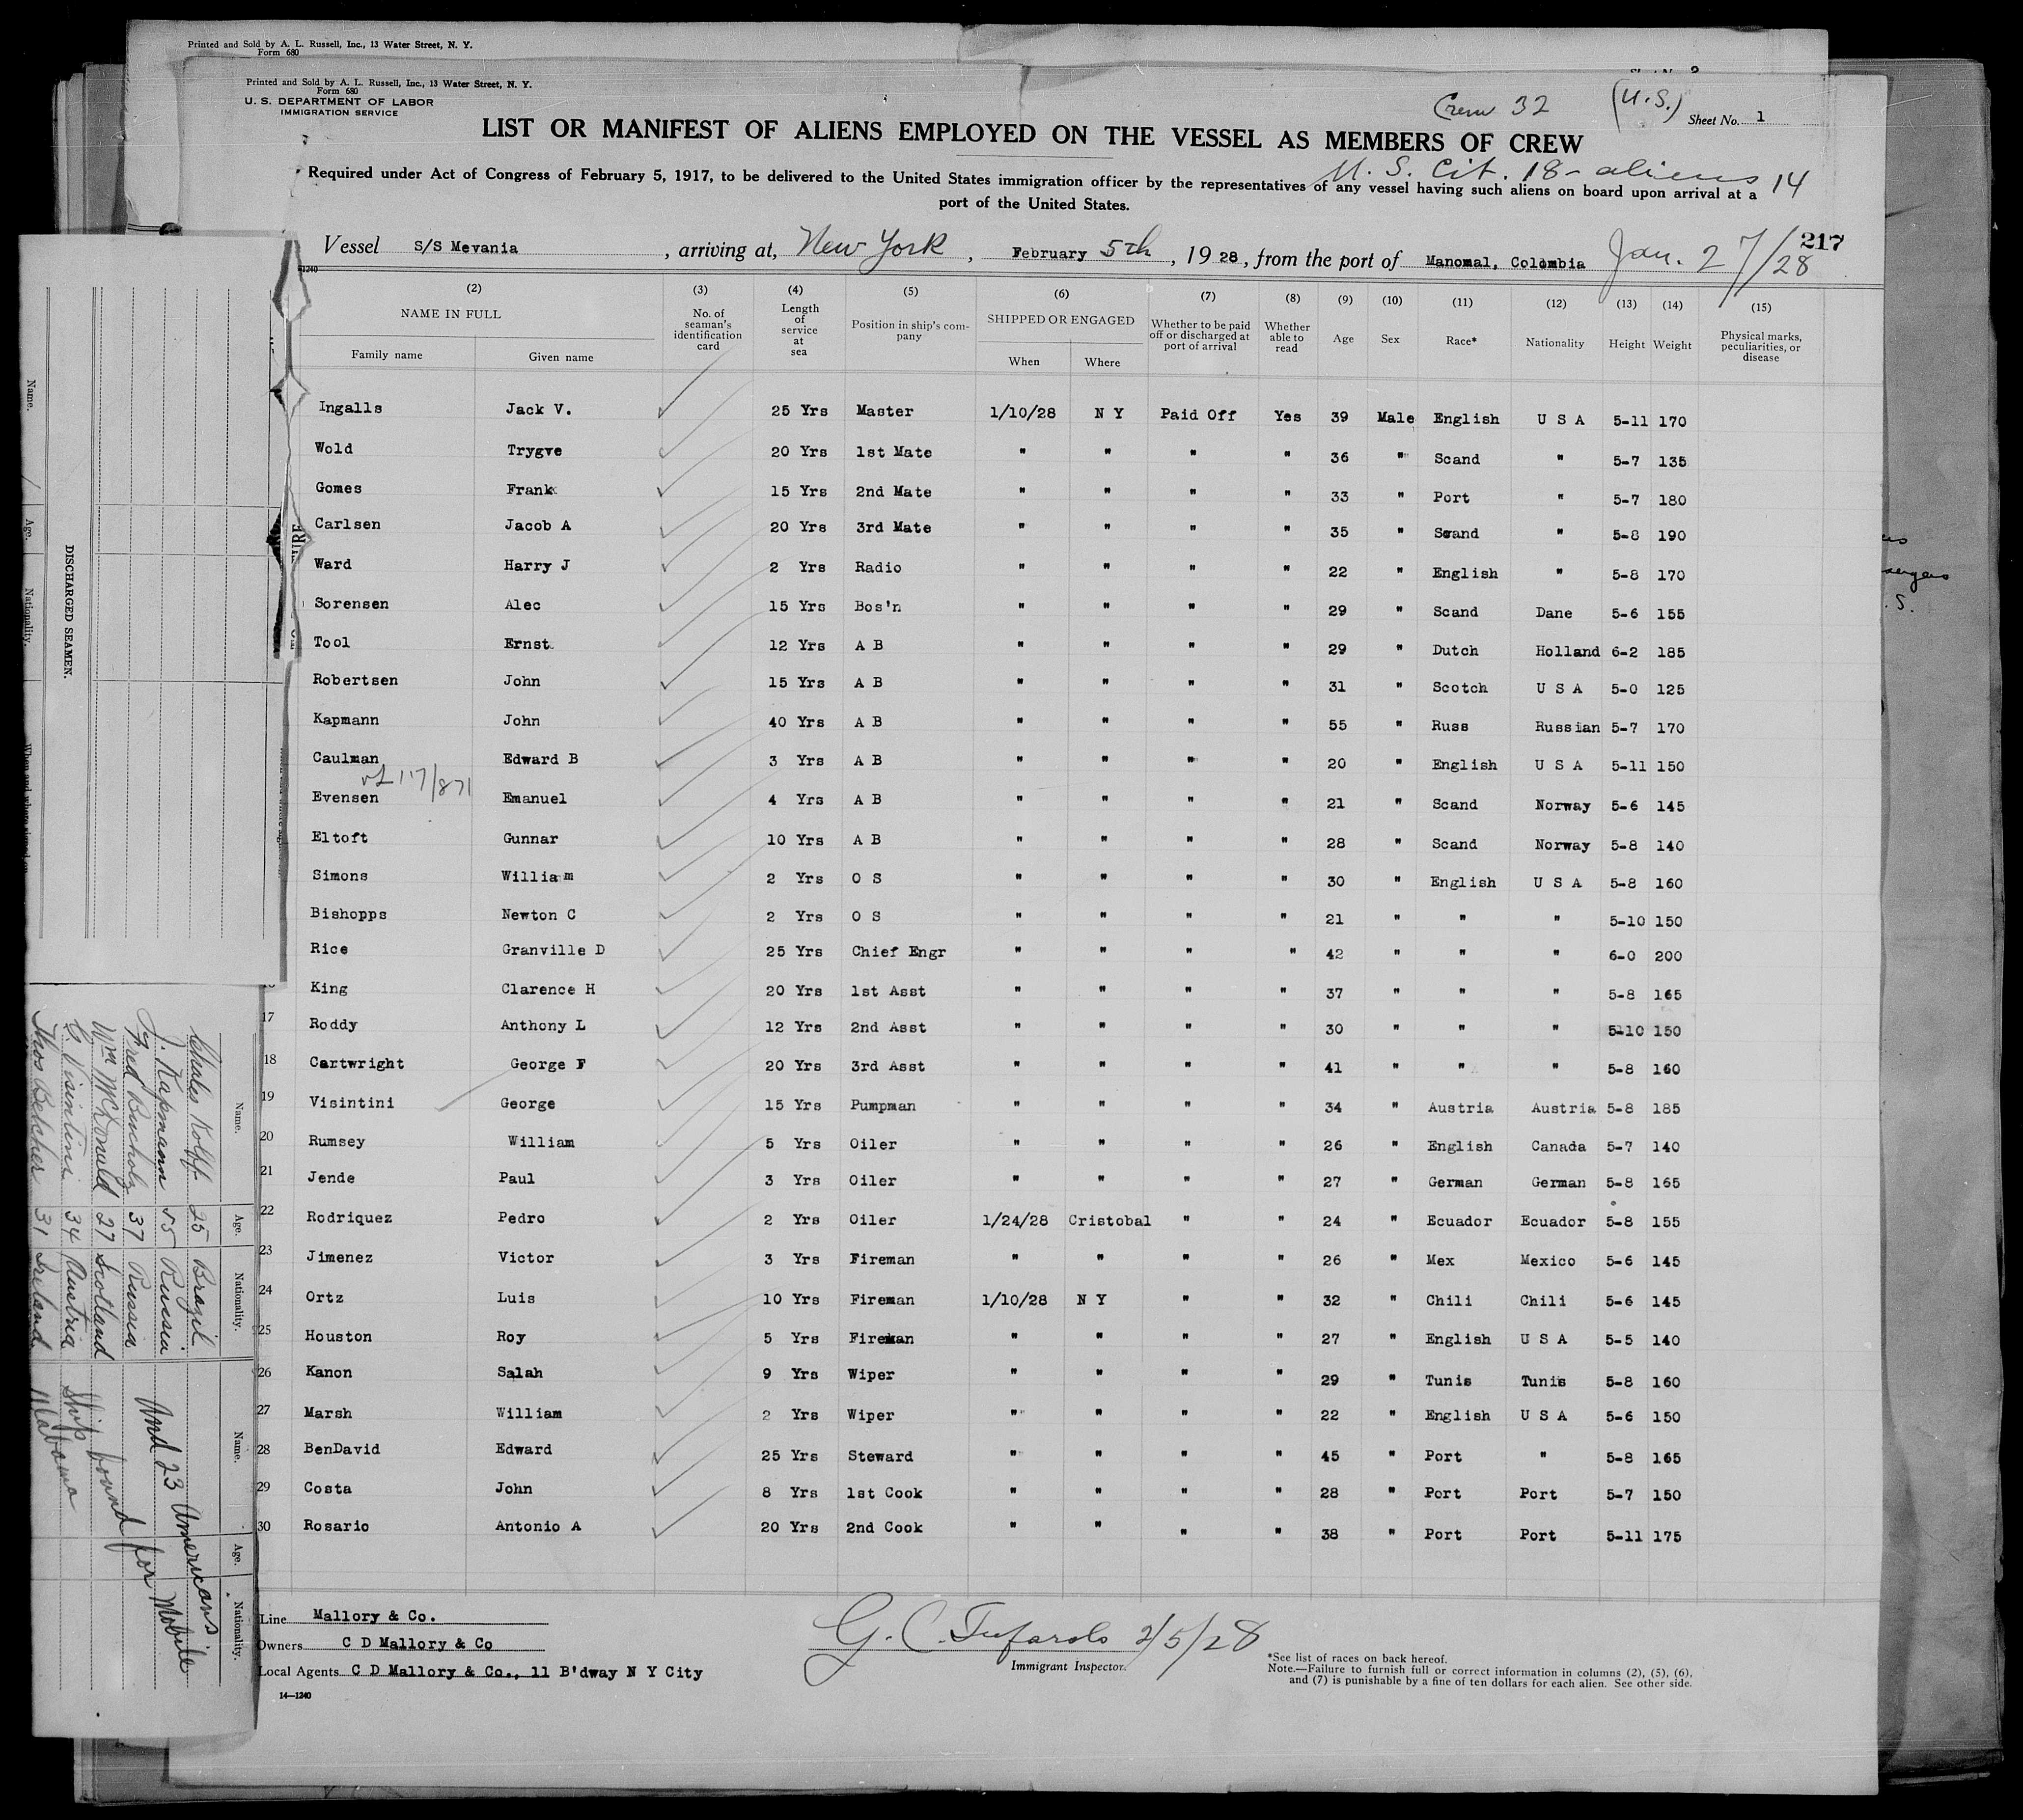 Printed and Sold by A. L. Russell, Inc., 13 Water Street, N. Y.
Form 680
Printed and Sold by A. L. Russell, Inc., 13 Water Street, N. Y.
Form 680
U. S. DEPARTMENT OF LABOR
IMMIGRATION SERVICE
Crew 32 (U.S.) Sheet No. 1
LIST OR MANIFEST OF ALIENS EMPLOYED ON THE VESSEL AS MEMBERS OF CREW
U. S. Cit. 18 - aliens 14
Required under Act of Congress of February 5, 1917, to be delivered to the United States immigration officer by the representatives of any vessel having such aliens on board upon arrival at a
port of the United States.
217
Vessel S/S Mevania, arriving at, New York, February 5th, 1928, from the port of Manomal, Colombia Jan. 27/28
(2) (3) (4) (5) (6) (7) (8) (9) (10) (11) (12) (13) (14) (15)
NAME IN FULL No. of seaman's identification card Length of service at sea Position in ship's company SHIPPED OR ENGAGED Whether to be paid off or discharged at port of arrival Whether able to read Age Sex Race* Nationality Height Weight Physical marks, peculiarities, or disease
Family name Given name When Where
Ingalls Jack V. 25 Yrs Master 1/10/28 N Y Paid Off Yes 39 Male English U S A 5-11 170
Wold Trygve 20 Yrs 1st Mate " " " " 36 " Scand " 5-7 135
Gomes Frank 15 Yrs 2nd Mate " " " " 33 " Port " 5-7 180
Carlsen Jacob A 20 Yrs 3rd Mate " " " " 35 " Scand " 5-8 190
Ward Harry J 2 Yrs Radio " " " " 22 " English " 5-8 170
Sorensen Alec 15 Yrs Bos'n " " " " 29 " Scand Dane 5-6 155
Tool Ernst 12 Yrs A B " " " " 29 " Dutch Holland 6-2 185
Robertsen John 15 Yrs A B " " " " 31 " Scotch U S A 5-0 125
Kapmann John 40 Yrs A B " " " " 55 " Russ Russian 5-7 170
Caulman Edward B 3 Yrs A B " " " " 20 " English U S A 5-11 150
117/871
Evensen Emanuel 4 Yrs A B " " " " 21 " Scand Norway 5-6 145
Eltoft Gunnar 10 Yrs A B " " " " 28 " Scand Norway 5-8 140
Simons William 2 Yrs O S " " " " 30 " English U S A 5-8 160
Bishopps Newton C 2 Yrs O S " " " " 21 " " " 5-10 150
Rice Granville D 25 Yrs Chief Engr " " " " 42 " " " 6-0 200
King Clarence H 20 Yrs 1st Asst " " " " 37 " " " 5-8 165
17 Roddy Anthony L 12 Yrs 2nd Asst " " " " 30 " " " 5-10 150
18 Cartwright George F 20 Yrs 3rd Asst " " " " 41 " " " 5-8 160
19 Visintini George 15 Yrs Pumpman " " " " 34 " Austria Austria 5-8 185
20 Rumsey William 5 Yrs Oiler " " " " 26 " English Canada 5-7 140
21 Jende Paul 3 Yrs Oiler " " " " 27 " German German 5-8 165
22 Rodriquez Pedro 2 Yrs Oiler 1/24/28 Cristobal " " 24 " Ecuador Ecuador 5-8 155
23 Jimenez Victor 3 Yrs Fireman " " " " 26 " Mex Mexico 5-6 145
24 Ortz Luis 10 Yrs Fireman 1/10/28 N Y " " 32 " Chili Chili 5-6 145
25 Houston Roy 5 Yrs Fireman " " " " 27 " English U S A 5-5 140
26 Kanon Salah 9 Yrs Wiper " " " " 29 " Tunis Tunis 5-8 160
27 Marsh William 2 Yrs Wiper " " " " 22 " English U S A 5-6 150
28 BenDavid Edward 25 Yrs Steward " " " " 45 " Port " 5-8 165
29 Costa John 8 Yrs 1st Cook " " " " 28 " Port Port 5-7 150
30 Rosario Antonio A 20 Yrs 2nd Cook " " " " 38 " Port Port 5-11 175
Line Mallory & Co.
Owners C D Mallory & Co
Local Agents C D Mallory & Co., 11 B'dway N Y City
14—1240
G. C. Tufarolo 2/5/28
Immigrant Inspector.
*See list of races on back hereof.
Note.—Failure to furnish full or correct information in columns (2), (5), (6),
and (7) is punishable by a fine of ten dollars for each alien. See other side.
DISCHARGED SEAMEN.
Name. Age. Nationality.
Name. Age. Nationality. Name. Age. Nationality.
Charles Kolff 25 Brazil
J. Kapmann 55 Russia
Fred Bucholz 37 Russia
Wm McDonald 27 Scotland
G. Visintini 34 Austria
Thos Belcher 31 Ireland
And 23 Americans
Ship bound for Mobile
Alabama